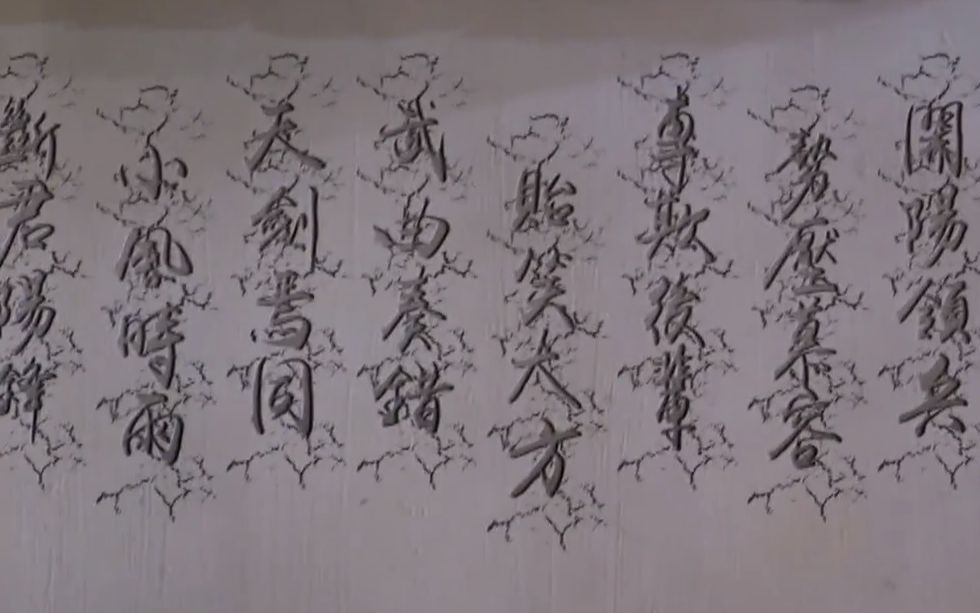 開陽領兵
聲壓慕容
專欺後輩
貽笑大方
武曲奏錯
天劍焉同
小風時雨
斷君陽鋒